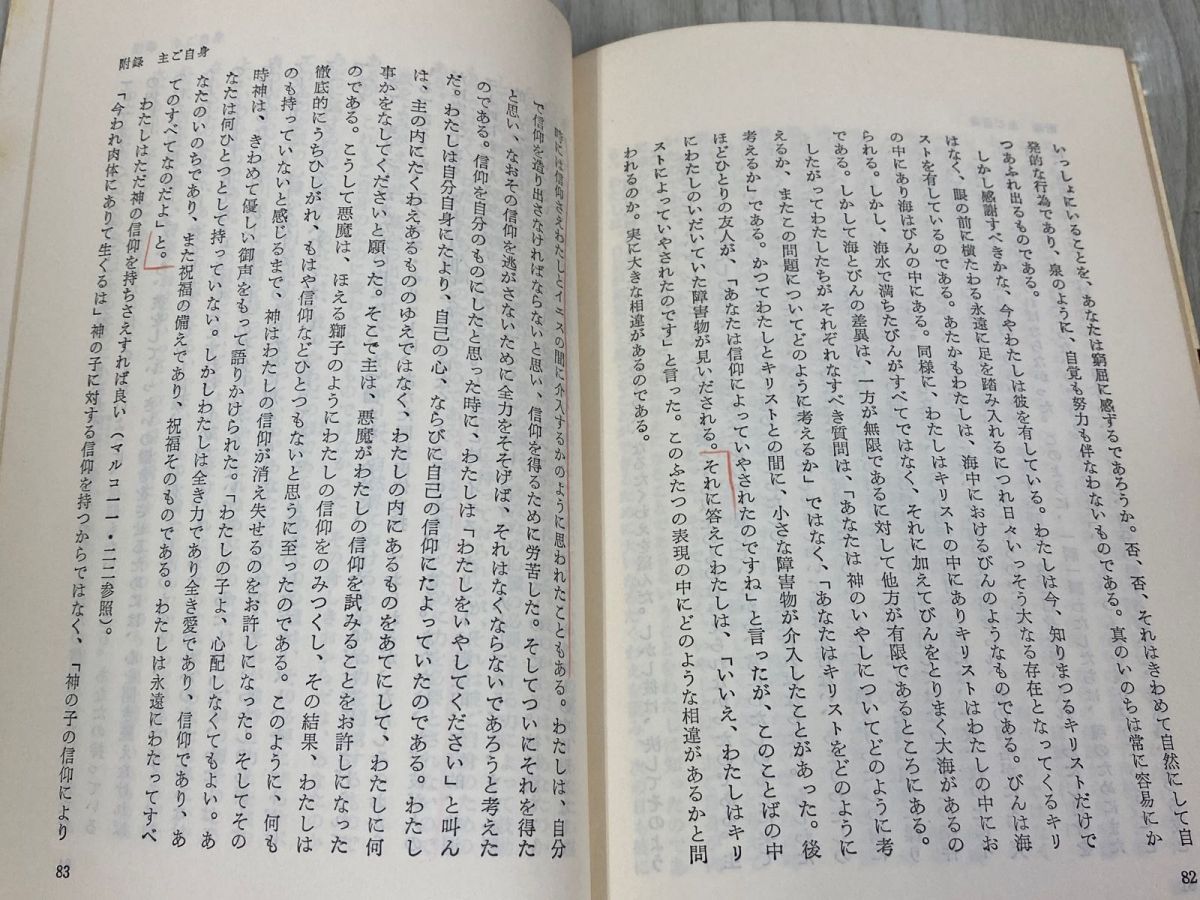 いっしょにいることを、あなたは窮屈に感ずるであろうか。否、否、それはきわめて自然にして自
発的な行為であり、泉のように、自覚も努力も伴わないものである。真のいのちは常に容易にか
つあふれ出るものである。
しかし感謝すべきかな、今やわたしは彼を有している。わたしは今、知りまつるキリストだけで
はなく、眼の前に横たわる永遠に足を踏み入れるにつれ日々いっそう大なる存在となってくるキリ
ストを有しているのである。あたかもわたしは、海中におけるびんのようなものである。びんは海
の中にあり海はびんの中にある。同様に、わたしはキリストの中にありキリストはわたしの中にお
られる。しかし、海水で満ちたびんがすべてではなく、それに加えてびんをとりまく大海があるの
である。しかして海とびんの差異は、一方が無限であるに対して他方が有限であるところにある。
したがってわたしたちが、それぞれなすべき質問は、「あなたは神のいやしについてどのように考
えるか、またこの問題についてどのように考えるか」ではなく、「あなたはキリストをどのように
考えるか」である。かつてわたしとキリストとの間に、小さな障害物が介入したことがあった。後
ほどひとりの友人が、「あなたは信仰によっていやされたのですね」と言ったが、このことばの中
にわたしのいだいていた障害物が見いだされる。それに答えてわたしは、「いいえ、わたしはキリ
ストによっていやされたのです」と言った。このふたつの表現の中にどのような相違があるかと問
われるのか。実に大きな相違があるのである。
82
附録　主ご自身
時には信仰さえわたしとイエスの間に介入するかのように思われたこともある。わたしは、自分
で信仰を造り出さなければならないと思い、信仰を得るために労苦した。そしてついにそれを得た
と思い、なおその信仰を逃がさないために全力をそそげば、それはなくならないであろうと考えた
のである。信仰を自分のものにしたと思った時に、わたしは「わたしをいやしてください」と叫ん
だ。わたしは自分自身にたより、自己の心、ならびに自己の信仰にたよっていたのである。わたし
は、主の内にたくわえあるもののゆえではなく、わたしの内にあるものをあてにして、わたしに何
事かをなしてくださいと願った。そこで主は、悪魔がわたしの信仰を試みることをお許しになった
のである。こうして悪魔は、ほえる獅子のようにわたしの信仰をのみつくし、その結果、わたしは
徹底的にうちひしがれ、もはや信仰などひとつもないと思うに至ったのである。このように、何も
のも持っていないと感じるまで、神はわたしの信仰が消え失せるのをお許しになった。そしてその
時神は、きわめて優しい御声をもって語りかけられた。「わたしの子よ、心配しなくてもよい。あ
なたは何ひとつとして持っていない。しかしわたしは全き力であり全き愛であり、信仰であり、あ
なたのいのちであり、また祝福の備えであり、祝福そのものである。わたしは永遠にわたってすべ
てのすべてなのだよ」と。
わたしはただ神の信仰を持ちさえすれば良い（マルコ一一・二二参照）。
「今われ肉体にありて生くるは」神の子に対する信仰を持つからではなく、「神の子の信仰により
83